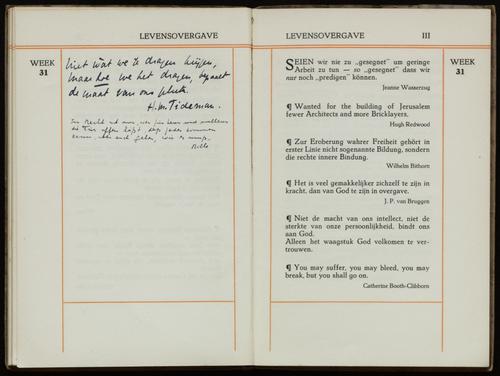 LEVENSOVERGAVE
WEEK
31
Niet wat we te dragen krijgen,
maar hoe we het dragen, bepaalt
de maat van ons geluk.
H. M. Tideman.
LEVENSOVERGAVE III
WEEK
31
SEIEN wir nie zu „gesegnet" um geringe
Arbeit zu tun — so „gesegnet" dass wir
nur noch „predigen" können.
Jeanne Wasserzug
¶ Wanted for the building of Jerusalem
fewer Architects and more Bricklayers.
Hugh Redwood
¶ Zur Eroberung wahrer Freiheit gehört in
erster Linie nicht sogenannte Bildung, sondern
die rechte innere Bindung.
Wilhelm Bithorn
¶ Het is veel gemakkelijker zichzelf te zijn in
kracht, dan van God te zijn in overgave.
J. P. van Bruggen
¶ Niet de macht van ons intellect, niet de
sterkte van onze persoonlijkheid, bindt ons
aan God.
Alleen het waagstuk God volkomen te ver-
trouwen.
¶ You may suffer, you may bleed, you may
break, but you shall go on.
Catherine Booth-Clibborn